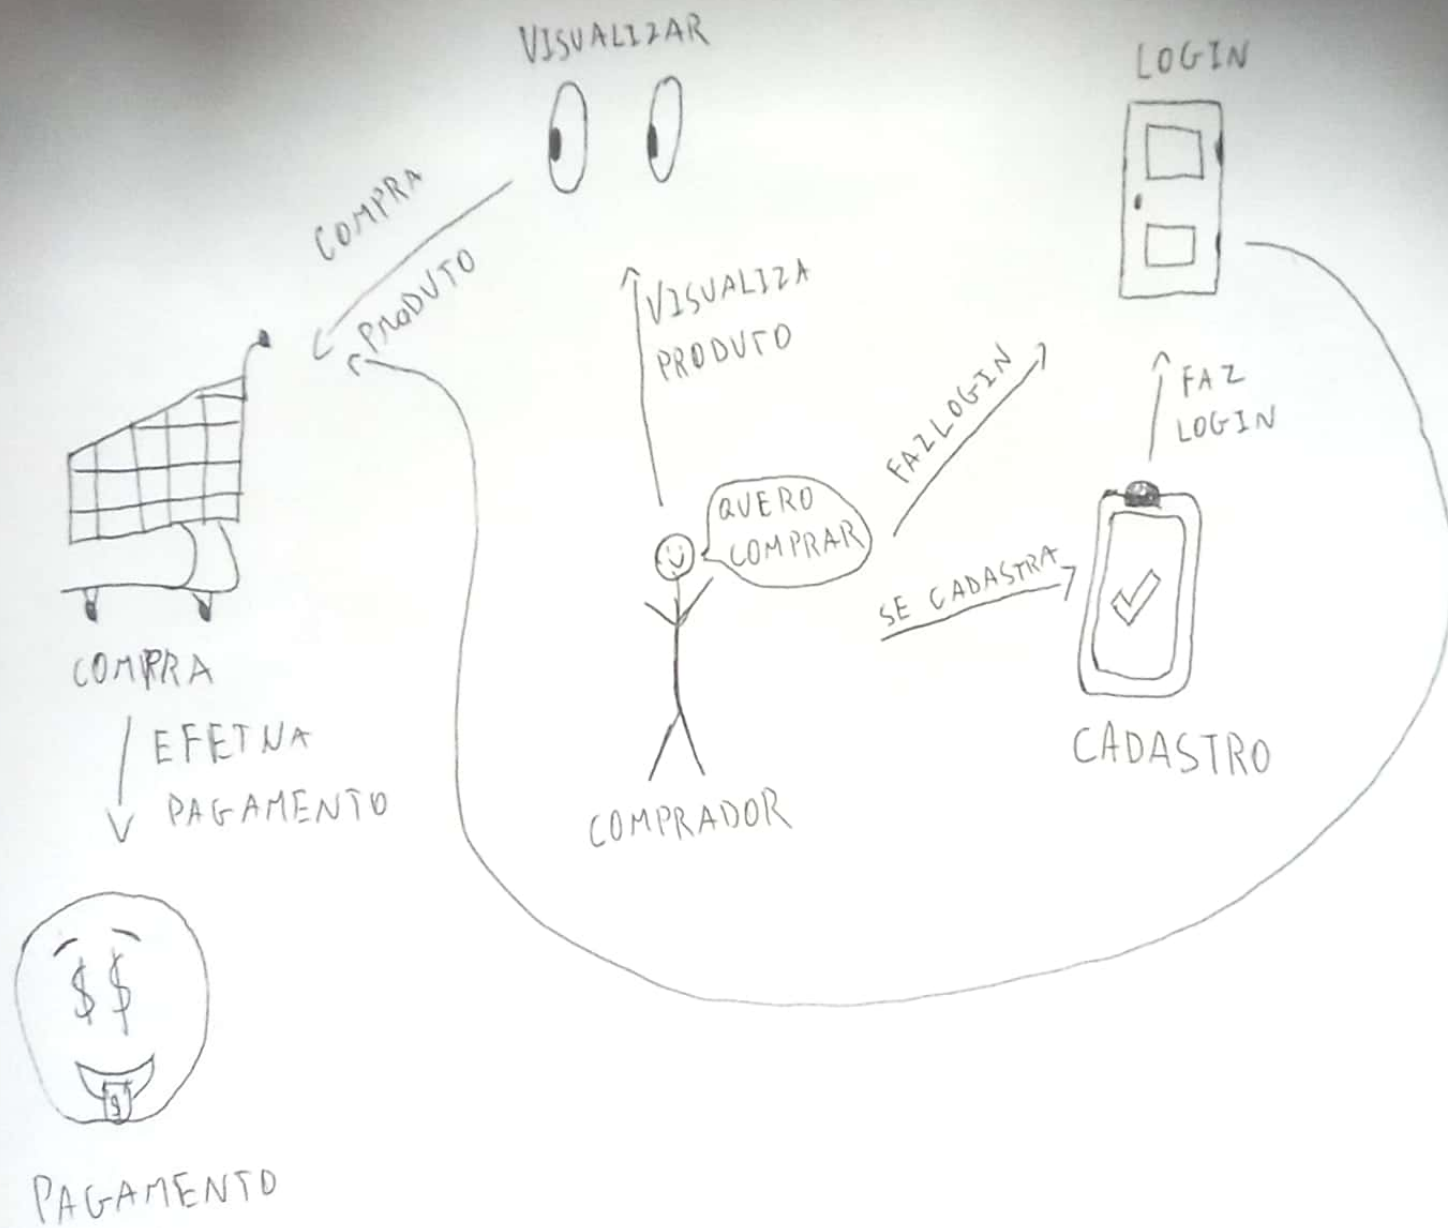 VISUALIZAR
LOGIN
COMPRA
PRODUTO
VISUALIZA
PRODUTO
FAZ LOGIN
FAZ
LOGIN
QUERO
COMPRAR
SE CADASTRA
COMPRA
EFETUA
PAGAMENTO
CADASTRO
COMPRADOR
$$
$
PAGAMENTO